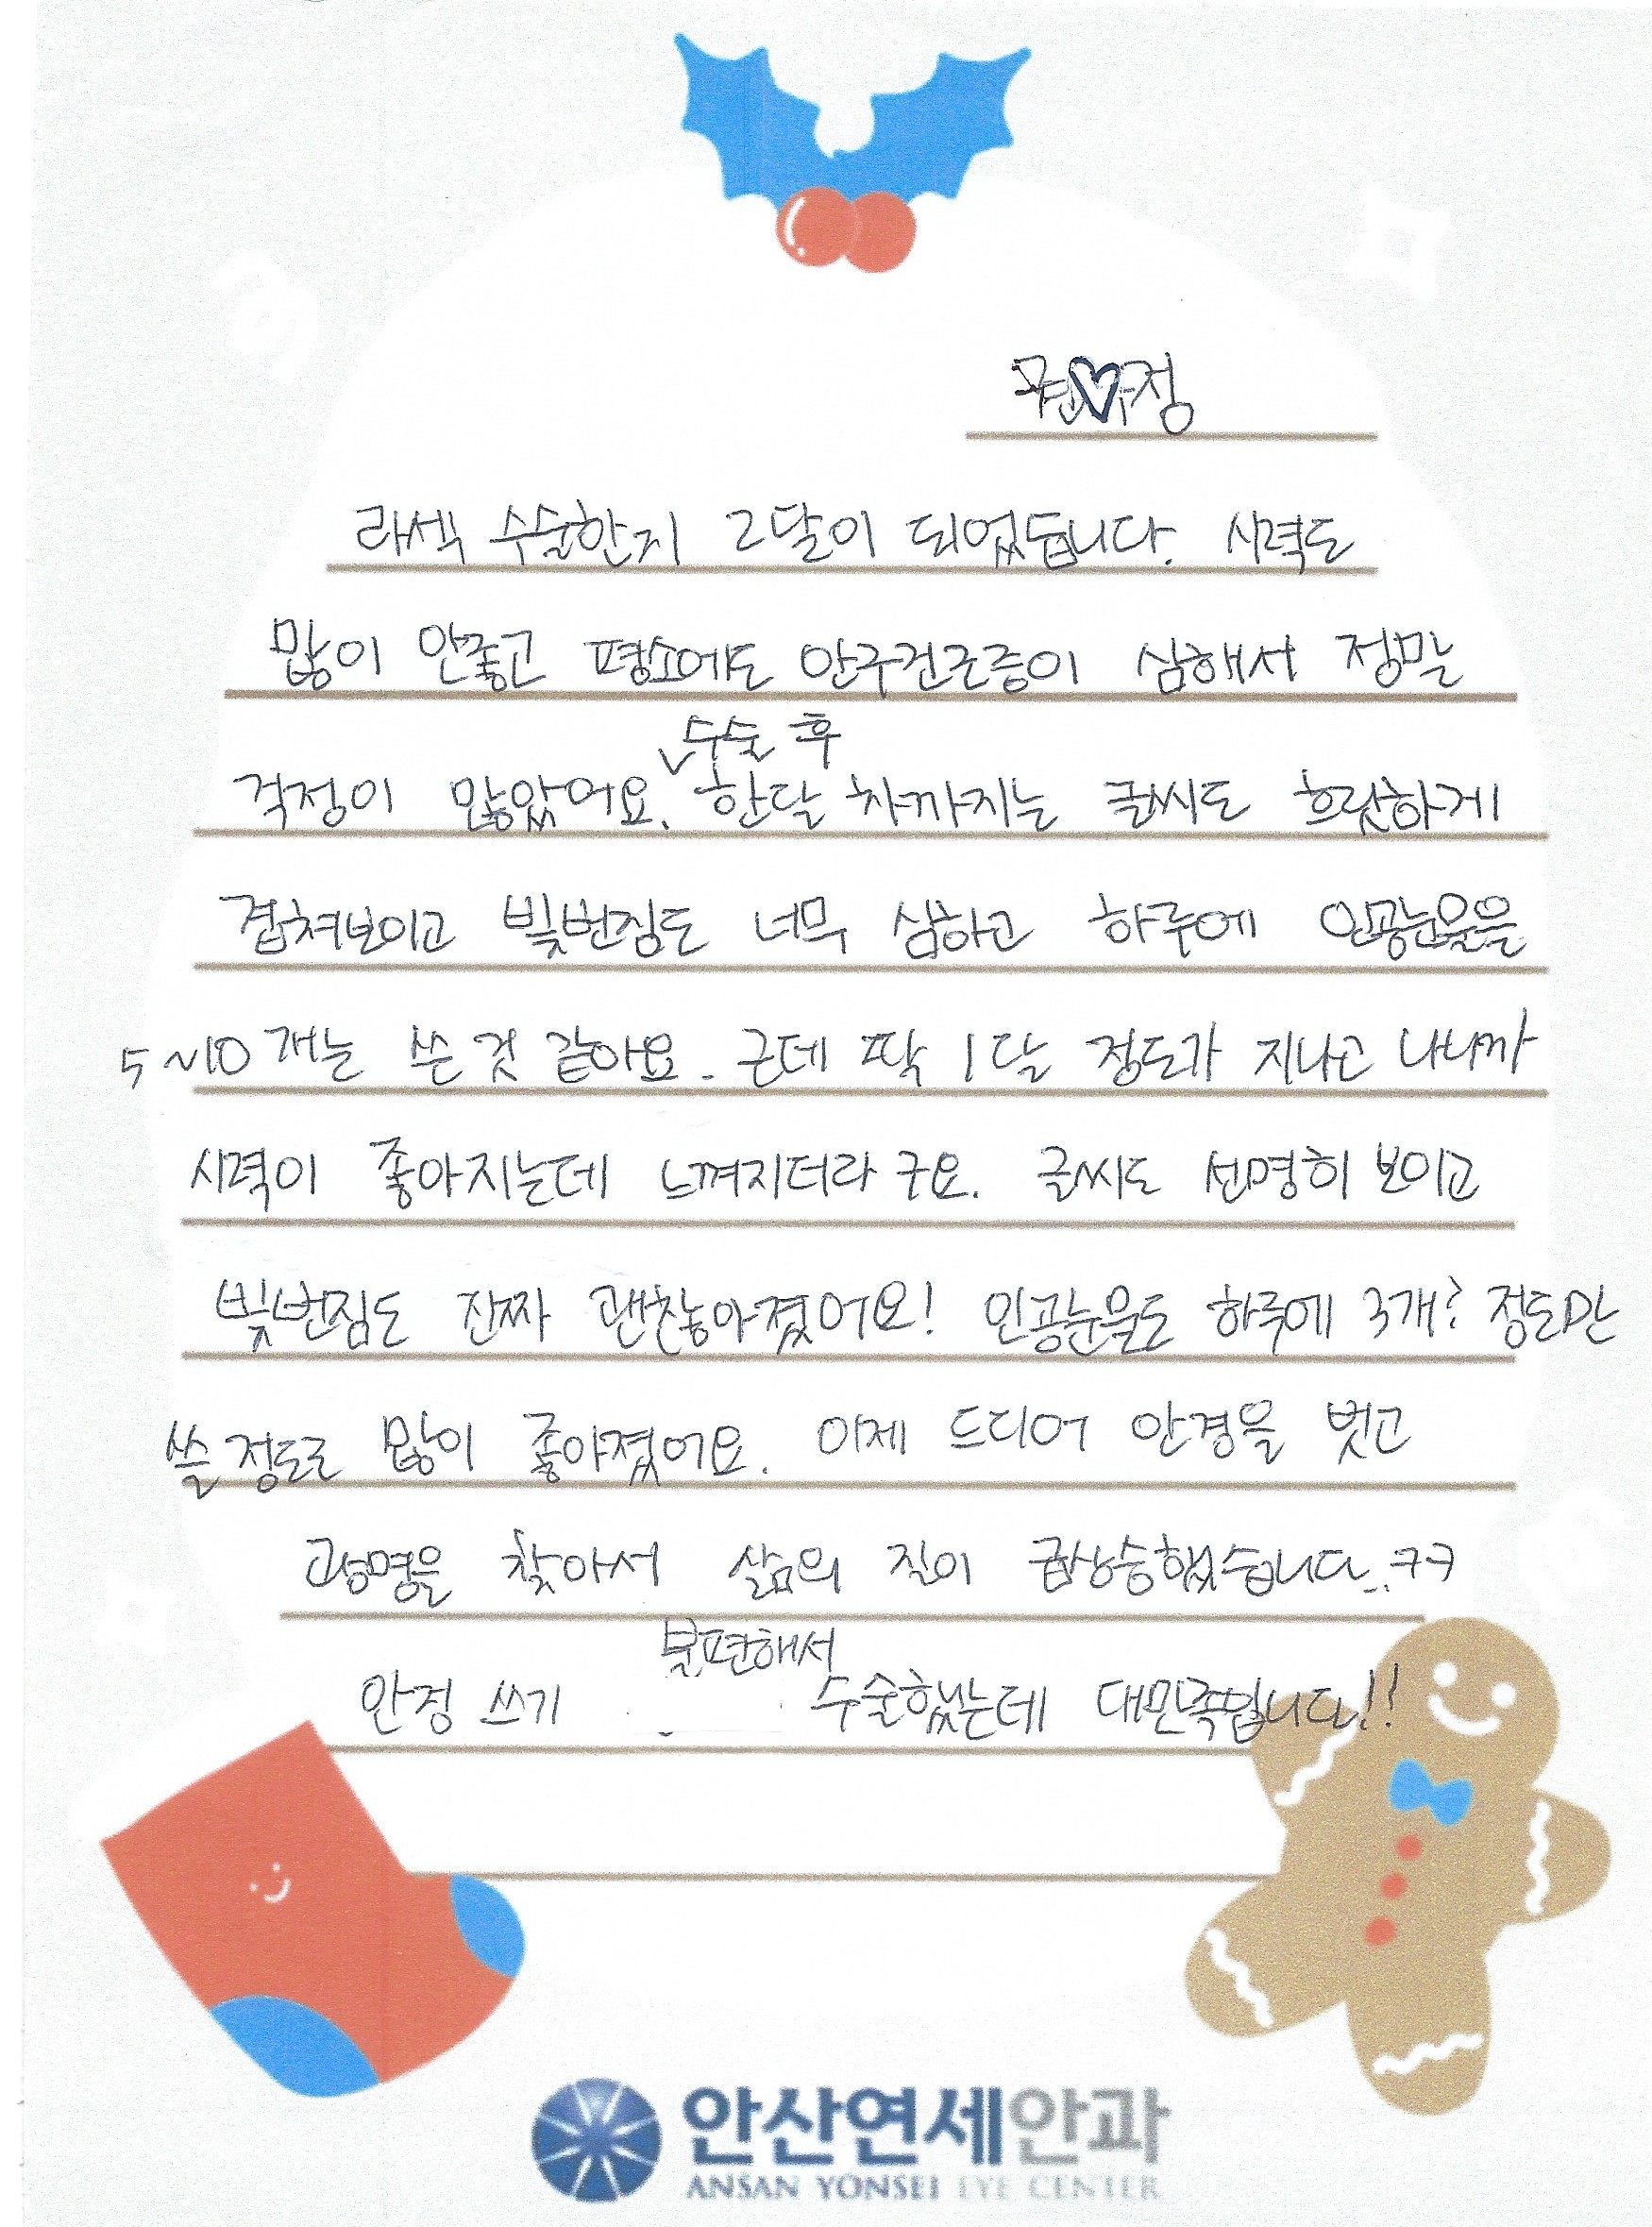 권♡정
라섹 수술한지 2달이 되었습니다. 시력도
많이 안좋고 평소에도 안구건조증이 심해서 정말
수술 후
걱정이 많았어요. 한달 차까지는 글씨도 흐릿하게
겹쳐보이고 빛번짐도 너무 심하고 하루에 인공눈물을
5~10개는 쓴 것 같아요. 근데 딱 1달 정도가 지나고 나니까
시력이 좋아지는데 느껴지더라구요. 글씨도 선명히 보이고
빛번짐도 진짜 괜찮아졌어요! 인공눈물도 하루에 3개? 정도만
쓸 정도로 많이 좋아졌어요. 이제 드디어 안경을 벗고
광명을 찾아서 삶의 질이 급상승했습니다..ㅋㅋ
불편해서
안경 쓰기 수술했는데 대만족입니다!!
안산연세안과
ANSAN YONSEI EYE CENTER